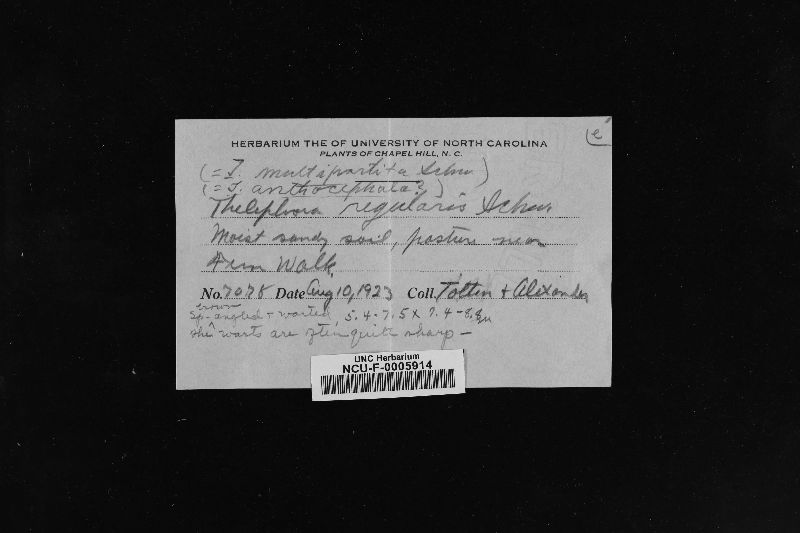 e
HERBARIUM THE OF UNIVERSITY OF NORTH CAROLINA
PLANTS OF CHAPEL HILL, N. C.
(= T. multipartita Schw)
(= T. anthocephala?)
Thelephora regularis Schw
Moist sandy soil, pasture near
Fern Walk
No. 7078 Date Aug 10, 1923 Coll. Totten & Alexander
brown
Sp. angled & warted, 5.4-7.5 x 7.4-8.8µ
the warts are often quite sharp -
UNC Herbarium
NCU-F-0005914